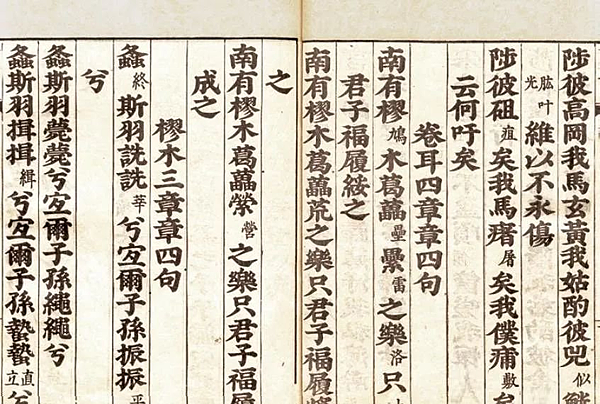 陟彼高岡我馬玄黃我姑酌彼兕似觥
肱叶光維以不永傷
陟彼砠疽矣我馬瘏屠矣我僕痡敷矣
云何吁矣
卷耳四章章四句
南有樛鳩木葛藟壘纍雷之樂洛只
君子福履綏之
南有樛木葛藟荒之樂只君子福履將
之
南有樛木葛藟縈營之樂只君子福履
成之
樛木三章章四句
螽終斯羽詵詵莘兮宜爾子孫振振平
兮
螽斯羽薨薨兮宜爾子孫繩繩兮
螽斯羽揖揖緝兮宜爾子孫蟄蟄直立兮